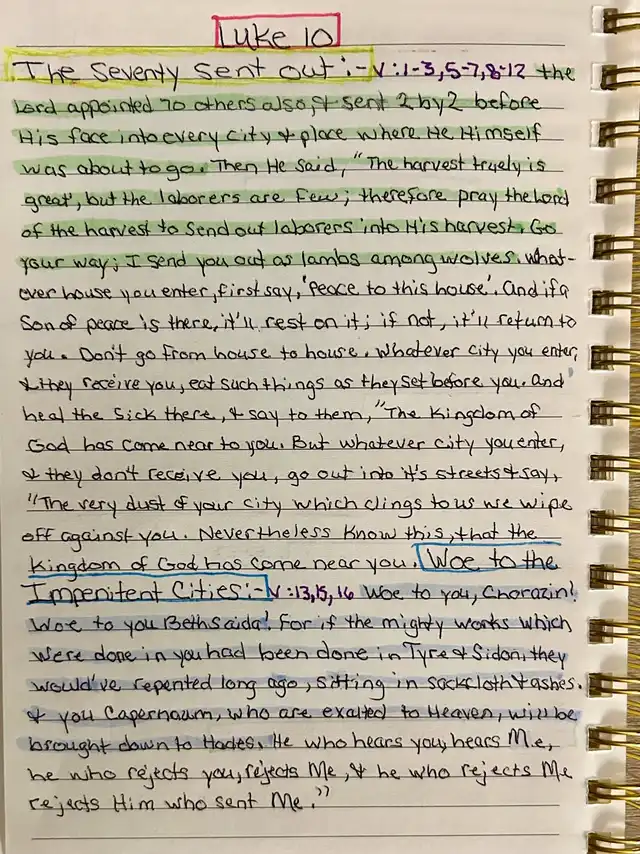 Luke 10
The Seventy Sent out:- V:1-3,5-7,8-12 the
Lord appointed 70 others also, & sent 2 by 2 before
His face into every city & place where He Himself
was about to go. Then He said, "The harvest truely is
great, but the laborers are few; therefore pray the Lord
of the harvest to send out laborers into His harvest. Go
your way; I send you out as lambs among wolves. What-
ever house you enter, first say, 'Peace to this house'. And if a
Son of peace is there, it'll rest on it; if not, it'll return to
you. Don't go from house to house. Whatever city you enter,
& they receive you, eat such things as they set before you. And
heal the sick there, & say to them, "The Kingdom of
God has come near to you. But whatever city you enter,
& they don't receive you, go out into it's streets & say,
"The very dust of your city which clings to us we wipe
off against you. Nevertheless know this, that the
Kingdom of God has come near you. Woe to the
Impenitent Cities:- V:13,15,16 Woe to you, Chorazin!
Woe to you Bethsaida! For if the mighty works which
were done in you had been done in Tyre & Sidon, they
would've repented long ago, sitting in sackcloth & ashes.
& you Capernaum, who are exalted to Heaven, will be
brought down to Hades. He who hears you, hears Me,
he who rejects you, rejects Me, & he who rejects Me
rejects Him who sent Me."